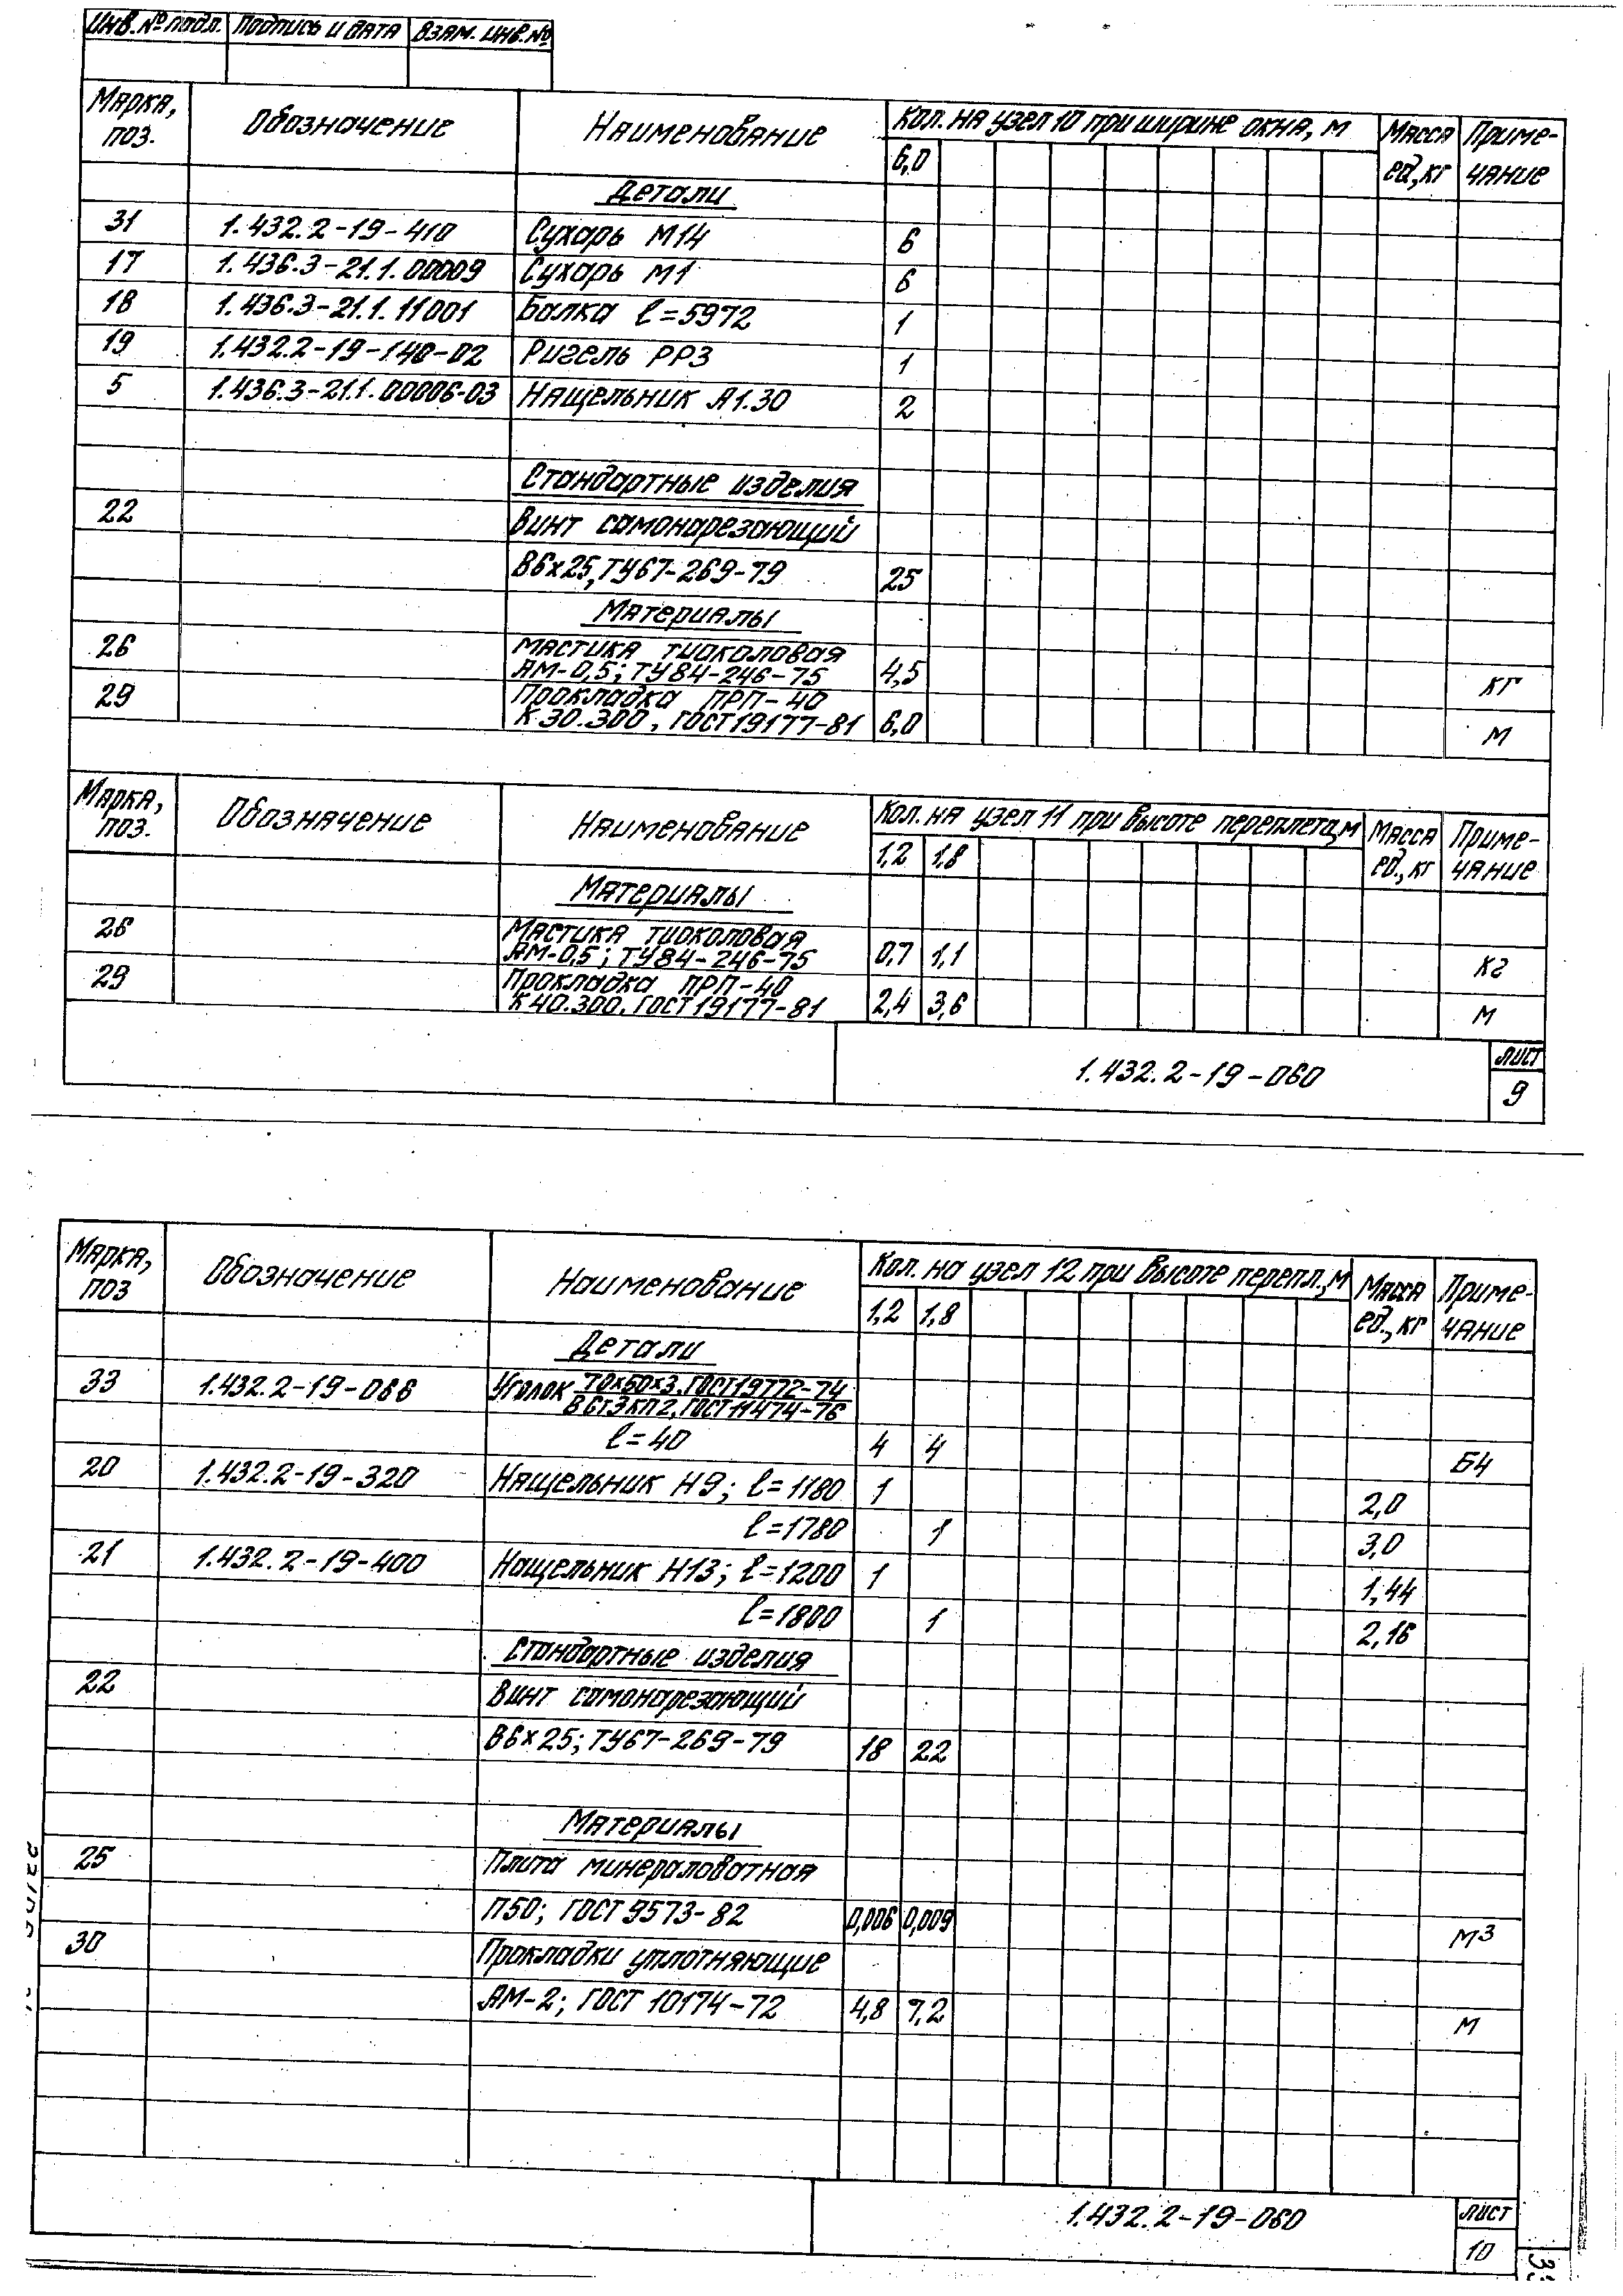 Инв. № подл. Подпись и дата Взам. инв. №
Марка, поз. Обозначение Наименование Кол. на узел 10 при ширине окна, м Масса ед., кг Примечание
6,0
Детали
31 1.432.2-19-410 Сухарь М14 6
17 1.436.3-21.1.00009 Сухарь М1 6
18 1.436.3-21.1.11001 Балка ℓ=5972 1
19 1.432.2-19-140-02 Ригель РР3 1
5 1.436.3-21.1.00006-03 Нащельник А1.30 2
Стандартные изделия
22 Винт самонарезающий
В6х25, ТУ67-269-79 25
Материалы
26 Мастика тиоколовая
АМ-0,5; ТУ84-246-75 4,5 кг
29 Прокладка ПРП-40
К30.300, ГОСТ19177-81 6,0 м
Марка, поз. Обозначение Наименование Кол. на узел 11 при высоте переплета, м Масса ед., кг Примечание
1,2 1,8
Материалы
26 Мастика тиоколовая
АМ-0,5; ТУ84-246-75 0,7 1,1 кг
29 Прокладка ПРП-40
К40.300. ГОСТ19177-81 2,4 3,6 м
1.432.2-19-060 лист
9
Марка, поз Обозначение Наименование Кол. на узел 12 при высоте перепл., м Масса ед., кг Примечание
1,2 1,8
Детали
33 1.432.2-19-066 Уголок 70х60х3, ГОСТ19772-74
ВСт3кп2, ГОСТ11474-76
ℓ=40 4 4 Б4
20 1.432.2-19-320 Нащельник Н9; ℓ=1180 1 2,0
ℓ=1780 1 3,0
21 1.432.2-19-400 Нащельник Н13; ℓ=1200 1 1,44
ℓ=1800 1 2,16
Стандартные изделия
22 Винт самонарезающий
В6х25; ТУ67-269-79 18 22
Материалы
25 Плита минераловатная
П50; ГОСТ 9573-82 0,006 0,009 м3
30 Прокладки уплотняющие
АМ-2; ГОСТ 10174-72 4,8 7,2 м
1.432.2-19-060 лист
10